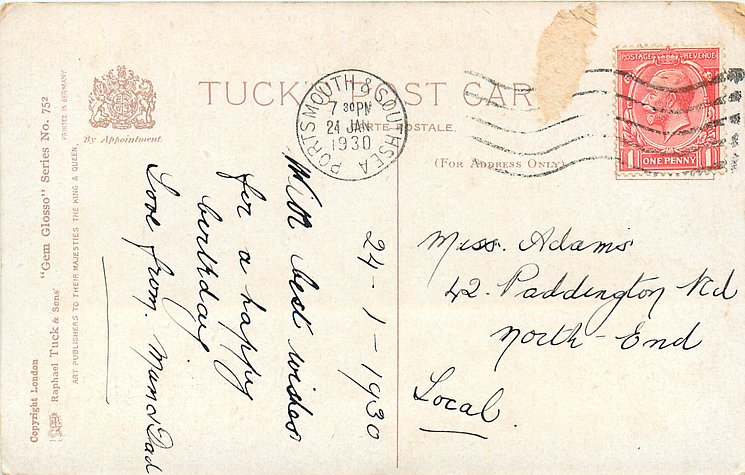 TUCK'S POST CARD
CARTE POSTALE.
(FOR ADDRESS ONLY)
By Appointment
PORTSMOUTH & SOUTHSEA
7 30 PM
21 JAN
1930
POSTAGE REVENUE
1 ONE PENNY 1
24-1-1930
With best wishes
for a happy
birthday
Love from. Mum & Dad
Miss. Adams
42. Paddington Rd
North-End
Local.
"Gem Glosso" Series No. 752
PRINTED IN GERMANY
Copyright London
Raphael Tuck & Sons'
ART PUBLISHERS TO THEIR MAJESTIES THE KING & QUEEN.